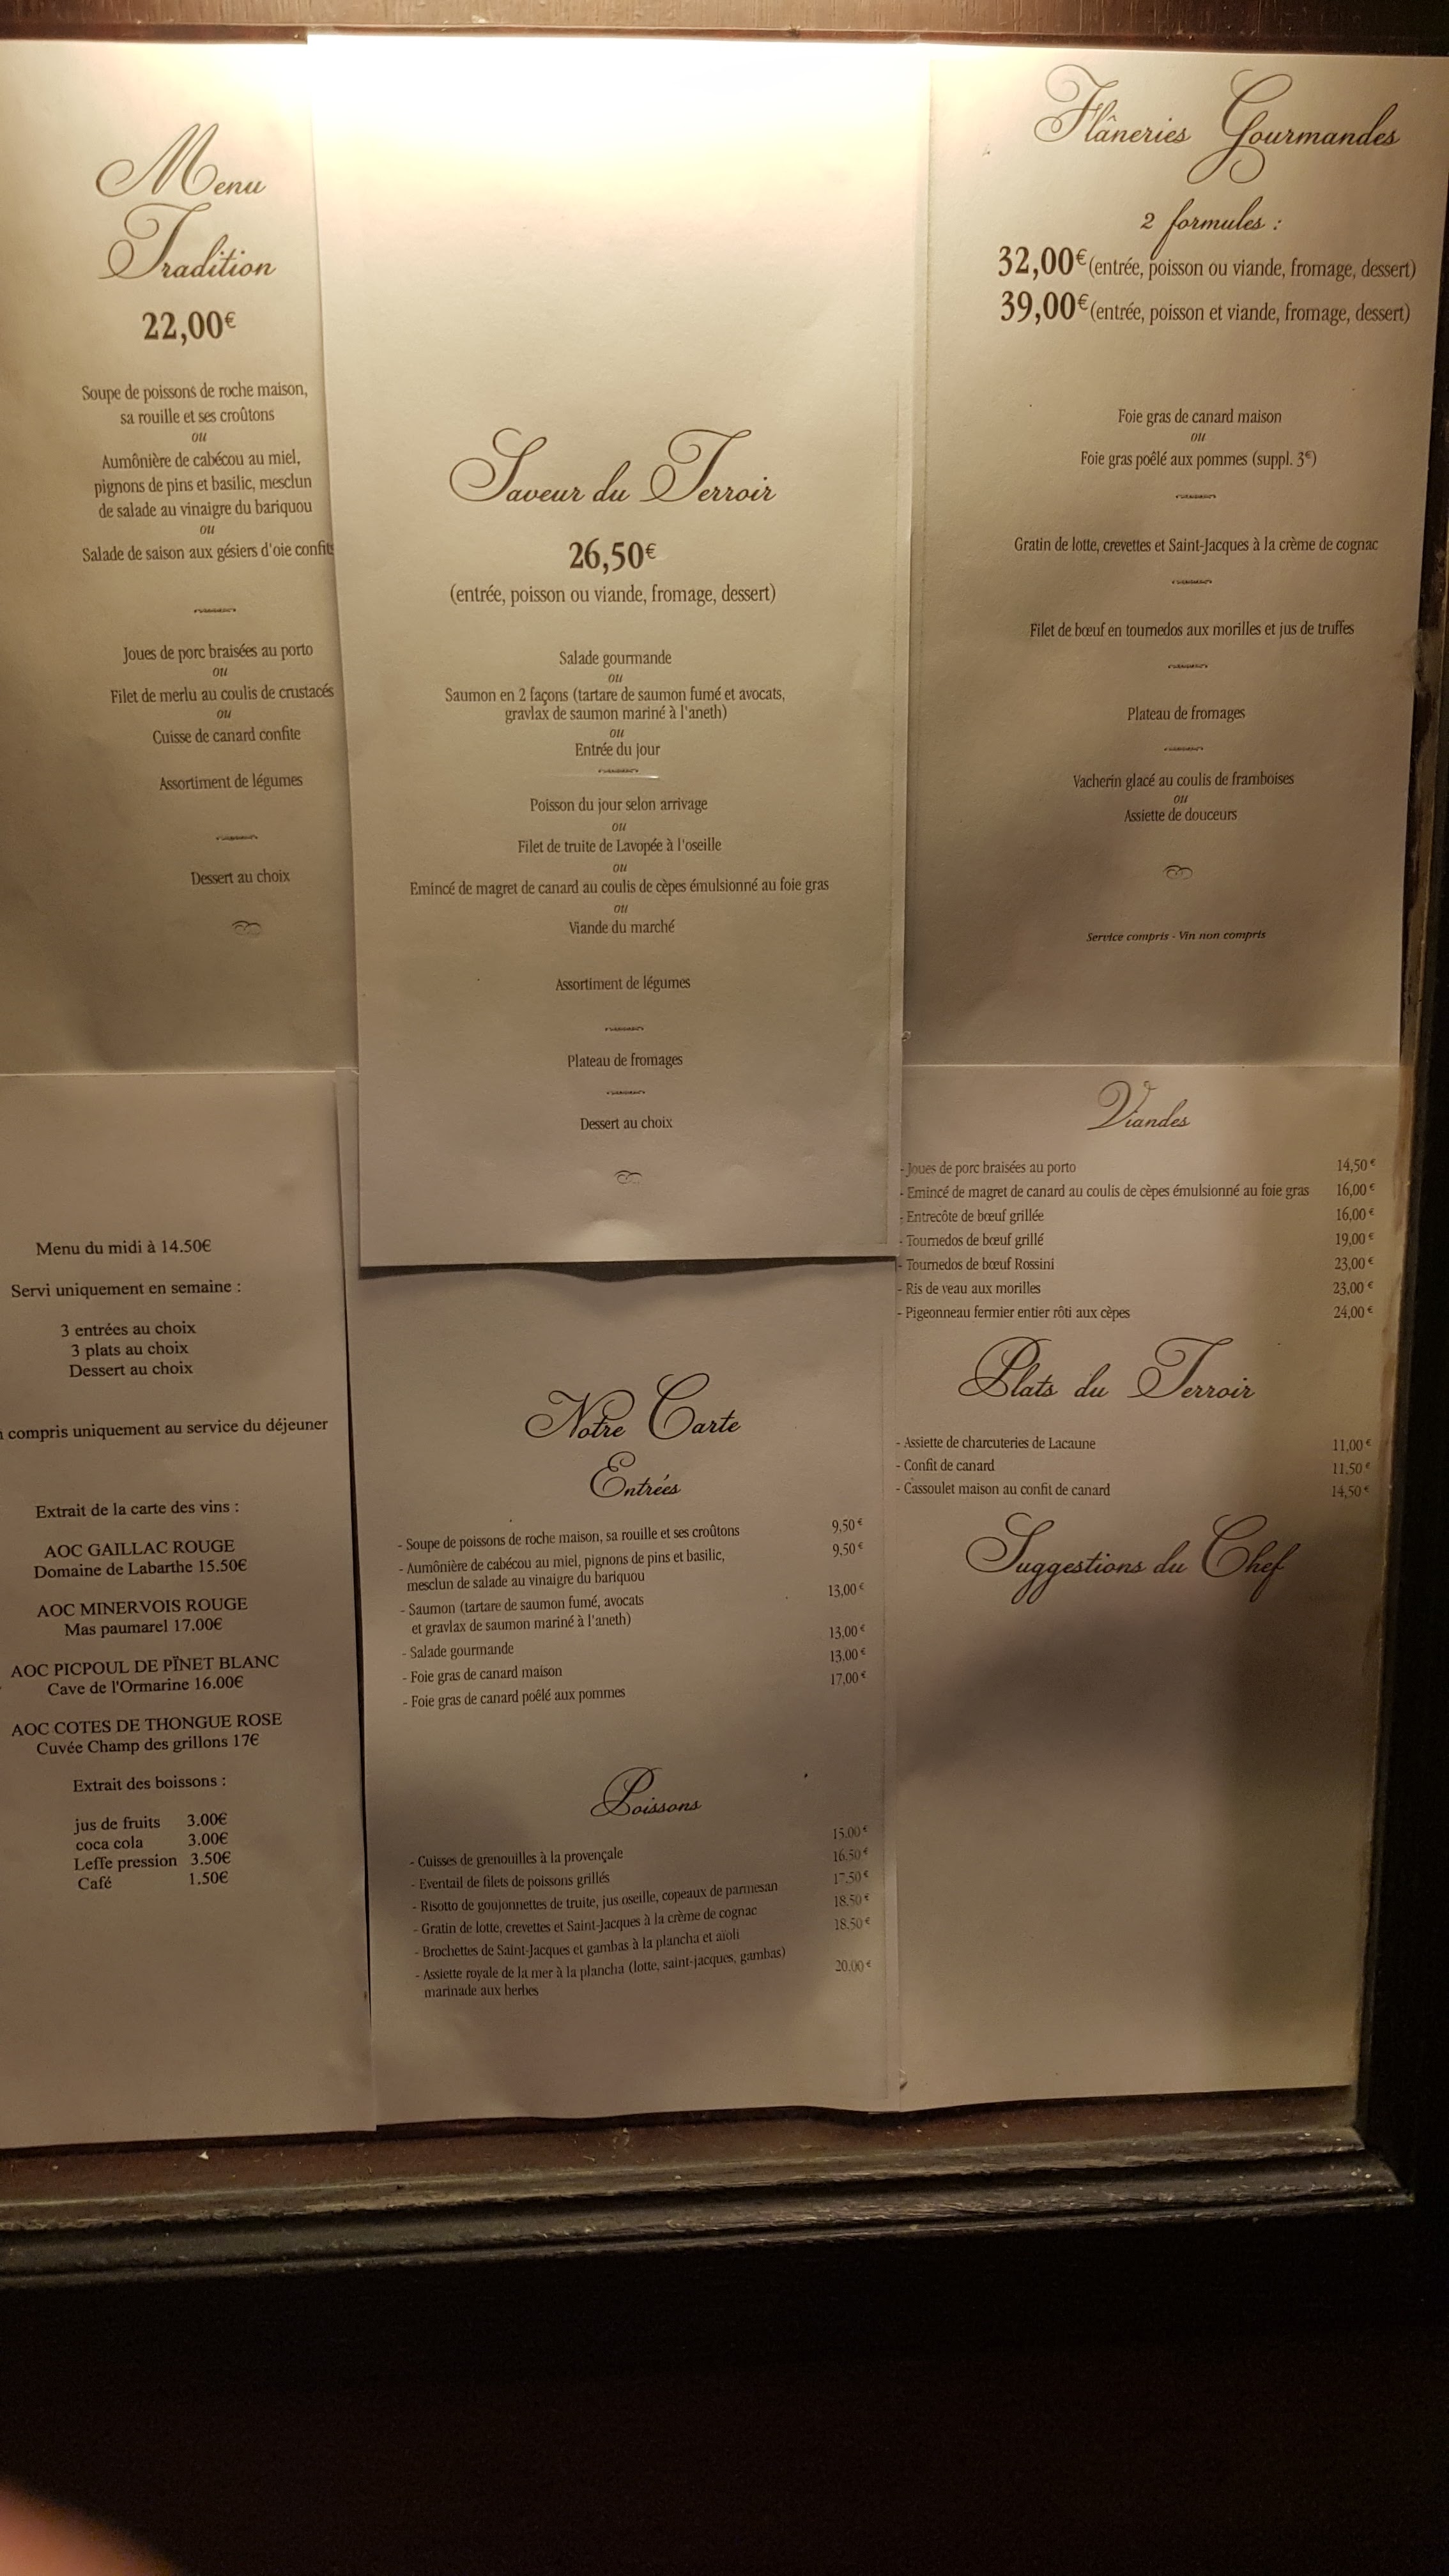 Menu
Tradition
22,00€
Soupe de poissons de roche maison,
sa rouille et ses croûtons
ou
Aumônière de cabécou au miel,
pignons de pins et basilic, mesclun
de salade au vinaigre du bariquou
ou
Salade de saison aux gésiers d'oie confits
Joues de porc braisées au porto
ou
Filet de merlu au coulis de crustacés
ou
Cuisse de canard confite
Assortiment de légumes
Dessert au choix
Saveur du Terroir
26,50€
(entrée, poisson ou viande, fromage, dessert)
Salade gourmande
ou
Saumon en 2 façons (tartare de saumon fumé et avocats,
gravlax de saumon mariné à l'aneth)
ou
Entrée du jour
Poisson du jour selon arrivage
ou
Filet de truite de Lavopée à l'oseille
ou
Emincé de magret de canard au coulis de cèpes émulsionné au foie gras
ou
Viande du marché
Assortiment de légumes
Plateau de fromages
Dessert au choix
Flâneries Gourmandes
2 formules :
32,00€ (entrée, poisson ou viande, fromage, dessert)
39,00€ (entrée, poisson et viande, fromage, dessert)
Foie gras de canard maison
ou
Foie gras poêlé aux pommes (suppl. 3€)
Gratin de lotte, crevettes et Saint-Jacques à la crème de cognac
Filet de bœuf en tournedos aux morilles et jus de truffes
Plateau de fromages
Vacherin glacé au coulis de framboises
ou
Assiette de douceurs
Service compris - Vin non compris
Menu du midi à 14.50€
Servi uniquement en semaine :
3 entrées au choix
3 plats au choix
Dessert au choix
compris uniquement au service du déjeuner
Extrait de la carte des vins :
AOC GAILLAC ROUGE
Domaine de Labarthe 15.50€
AOC MINERVOIS ROUGE
Mas paumarel 17.00€
AOC PICPOUL DE PÏNET BLANC
Cave de l'Ormarine 16.00€
AOC COTES DE THONGUE ROSE
Cuvée Champ des grillons 17€
Extrait des boissons :
jus de fruits 3.00€
coca cola 3.00€
Leffe pression 3.50€
Café 1.50€
Notre Carte
Entrées
- Soupe de poissons de roche maison, sa rouille et ses croûtons 9,50 €
- Aumônière de cabécou au miel, pignons de pins et basilic, 9,50 €
mesclun de salade au vinaigre du bariquou
- Saumon (tartare de saumon fumé, avocats 13,00 €
et gravlax de saumon mariné à l'aneth)
- Salade gourmande 13,00 €
- Foie gras de canard maison 13,00 €
- Foie gras de canard poêlé aux pommes 17,00 €
Poissons
- Cuisses de grenouilles à la provençale 15.00 €
- Eventail de filets de poissons grillés 16,50 €
- Risotto de goujonnettes de truite, jus oseille, copeaux de parmesan 17,50 €
- Gratin de lotte, crevettes et Saint-Jacques à la crème de cognac 18,50 €
- Brochettes de Saint-Jacques et gambas à la plancha et aïoli 18,50 €
- Assiette royale de la mer à la plancha (lotte, saint-jacques, gambas) 20,00 €
marinade aux herbes
Viandes
- Joues de porc braisées au porto 14,50 €
- Emincé de magret de canard au coulis de cèpes émulsionné au foie gras 16,00 €
- Entrecôte de bœuf grillée 16,00 €
- Tournedos de bœuf grillé 19,00 €
- Tournedos de bœuf Rossini 23,00 €
- Ris de veau aux morilles 23,00 €
- Pigeonneau fermier entier rôti aux cèpes 24,00 €
Plats du Terroir
- Assiette de charcuteries de Lacaune 11,00 €
- Confit de canard 11,50 €
- Cassoulet maison au confit de canard 14,50 €
Suggestions du Chef